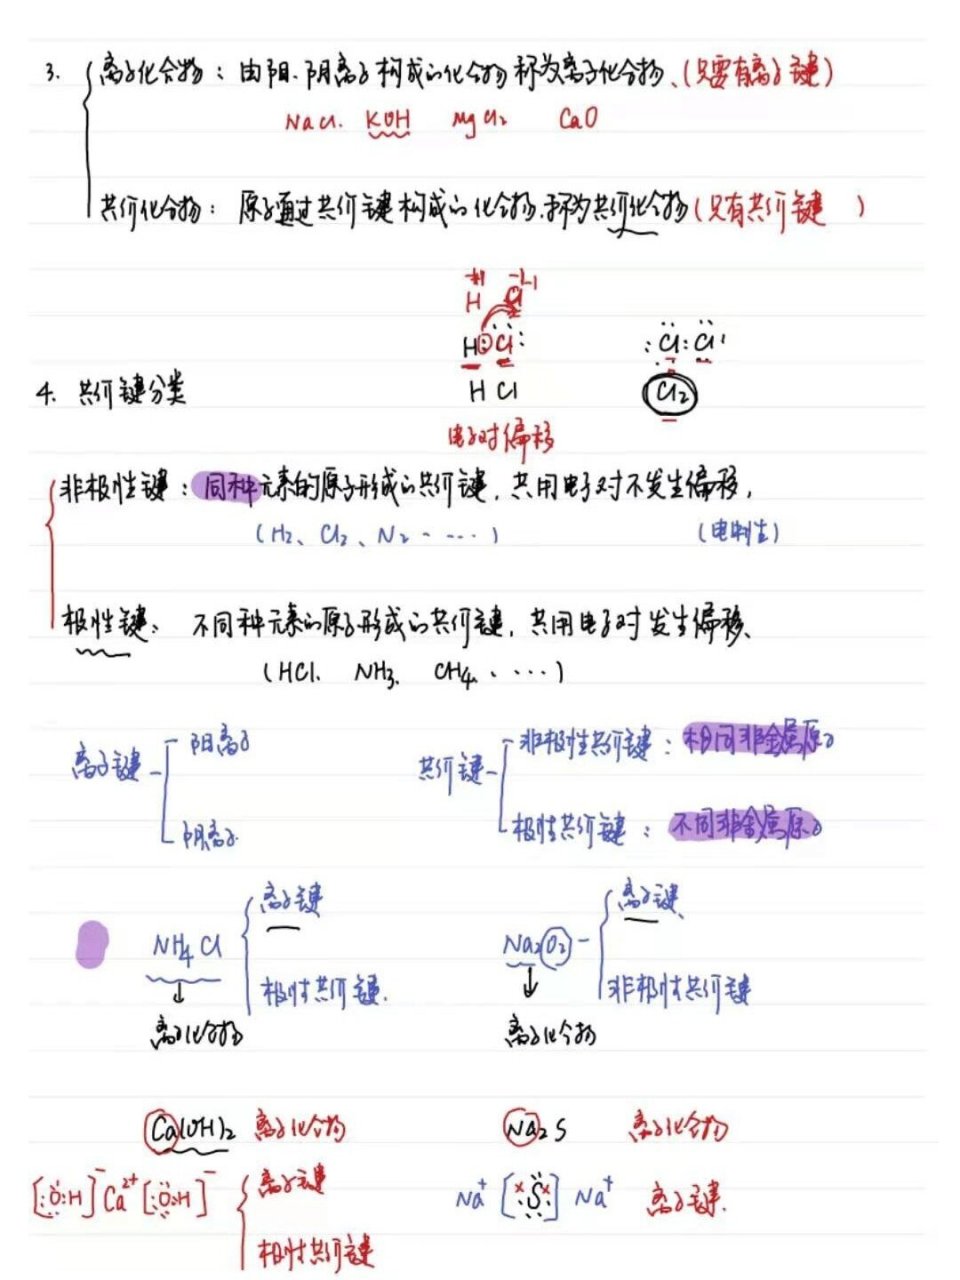 3. 离子化合物：由阳、阴离子构成的化合物称为离子化合物、(只要有离子键)
NaCl. KOH MgCl₂ CaO
共价化合物：原子通过共价键构成的化合物.称为共价化合物(只有共价键 )
+1 -1
H Cl
H:Cl: :Cl:Cl:
4. 共价键分类 H Cl Cl₂
电子对偏移
非极性键：同种元素的原子形成的共价键，共用电子对不发生偏移，
(H₂、Cl₂、N₂ -----) (电中性)
极性键： 不同种元素的原子形成的共价键，共用电子对发生偏移、
(HCl. NH₃. CH₄、····)
离子键 阳离子 共价键 非极性共价键：相同非金属原子
阴离子 极性共价键：不同非金属原子
离子键 离子键、
NH₄Cl Na₂O₂
极性共价键. 非极性共价键
↓ ↓
离子化合物 离子化合物
Ca(OH)₂ 离子化合物 Na₂S 离子化合物
[:Ö:H]⁻ Ca²⁺ [:Ö:H]⁻ 离子键 Na⁺ [:S:] Na⁺ 离子键.
极性共价键